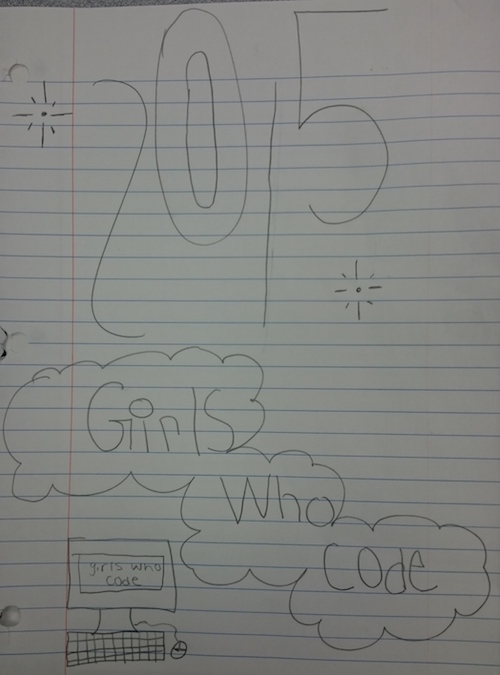 2015
Girls
Who
Code
girls who
code